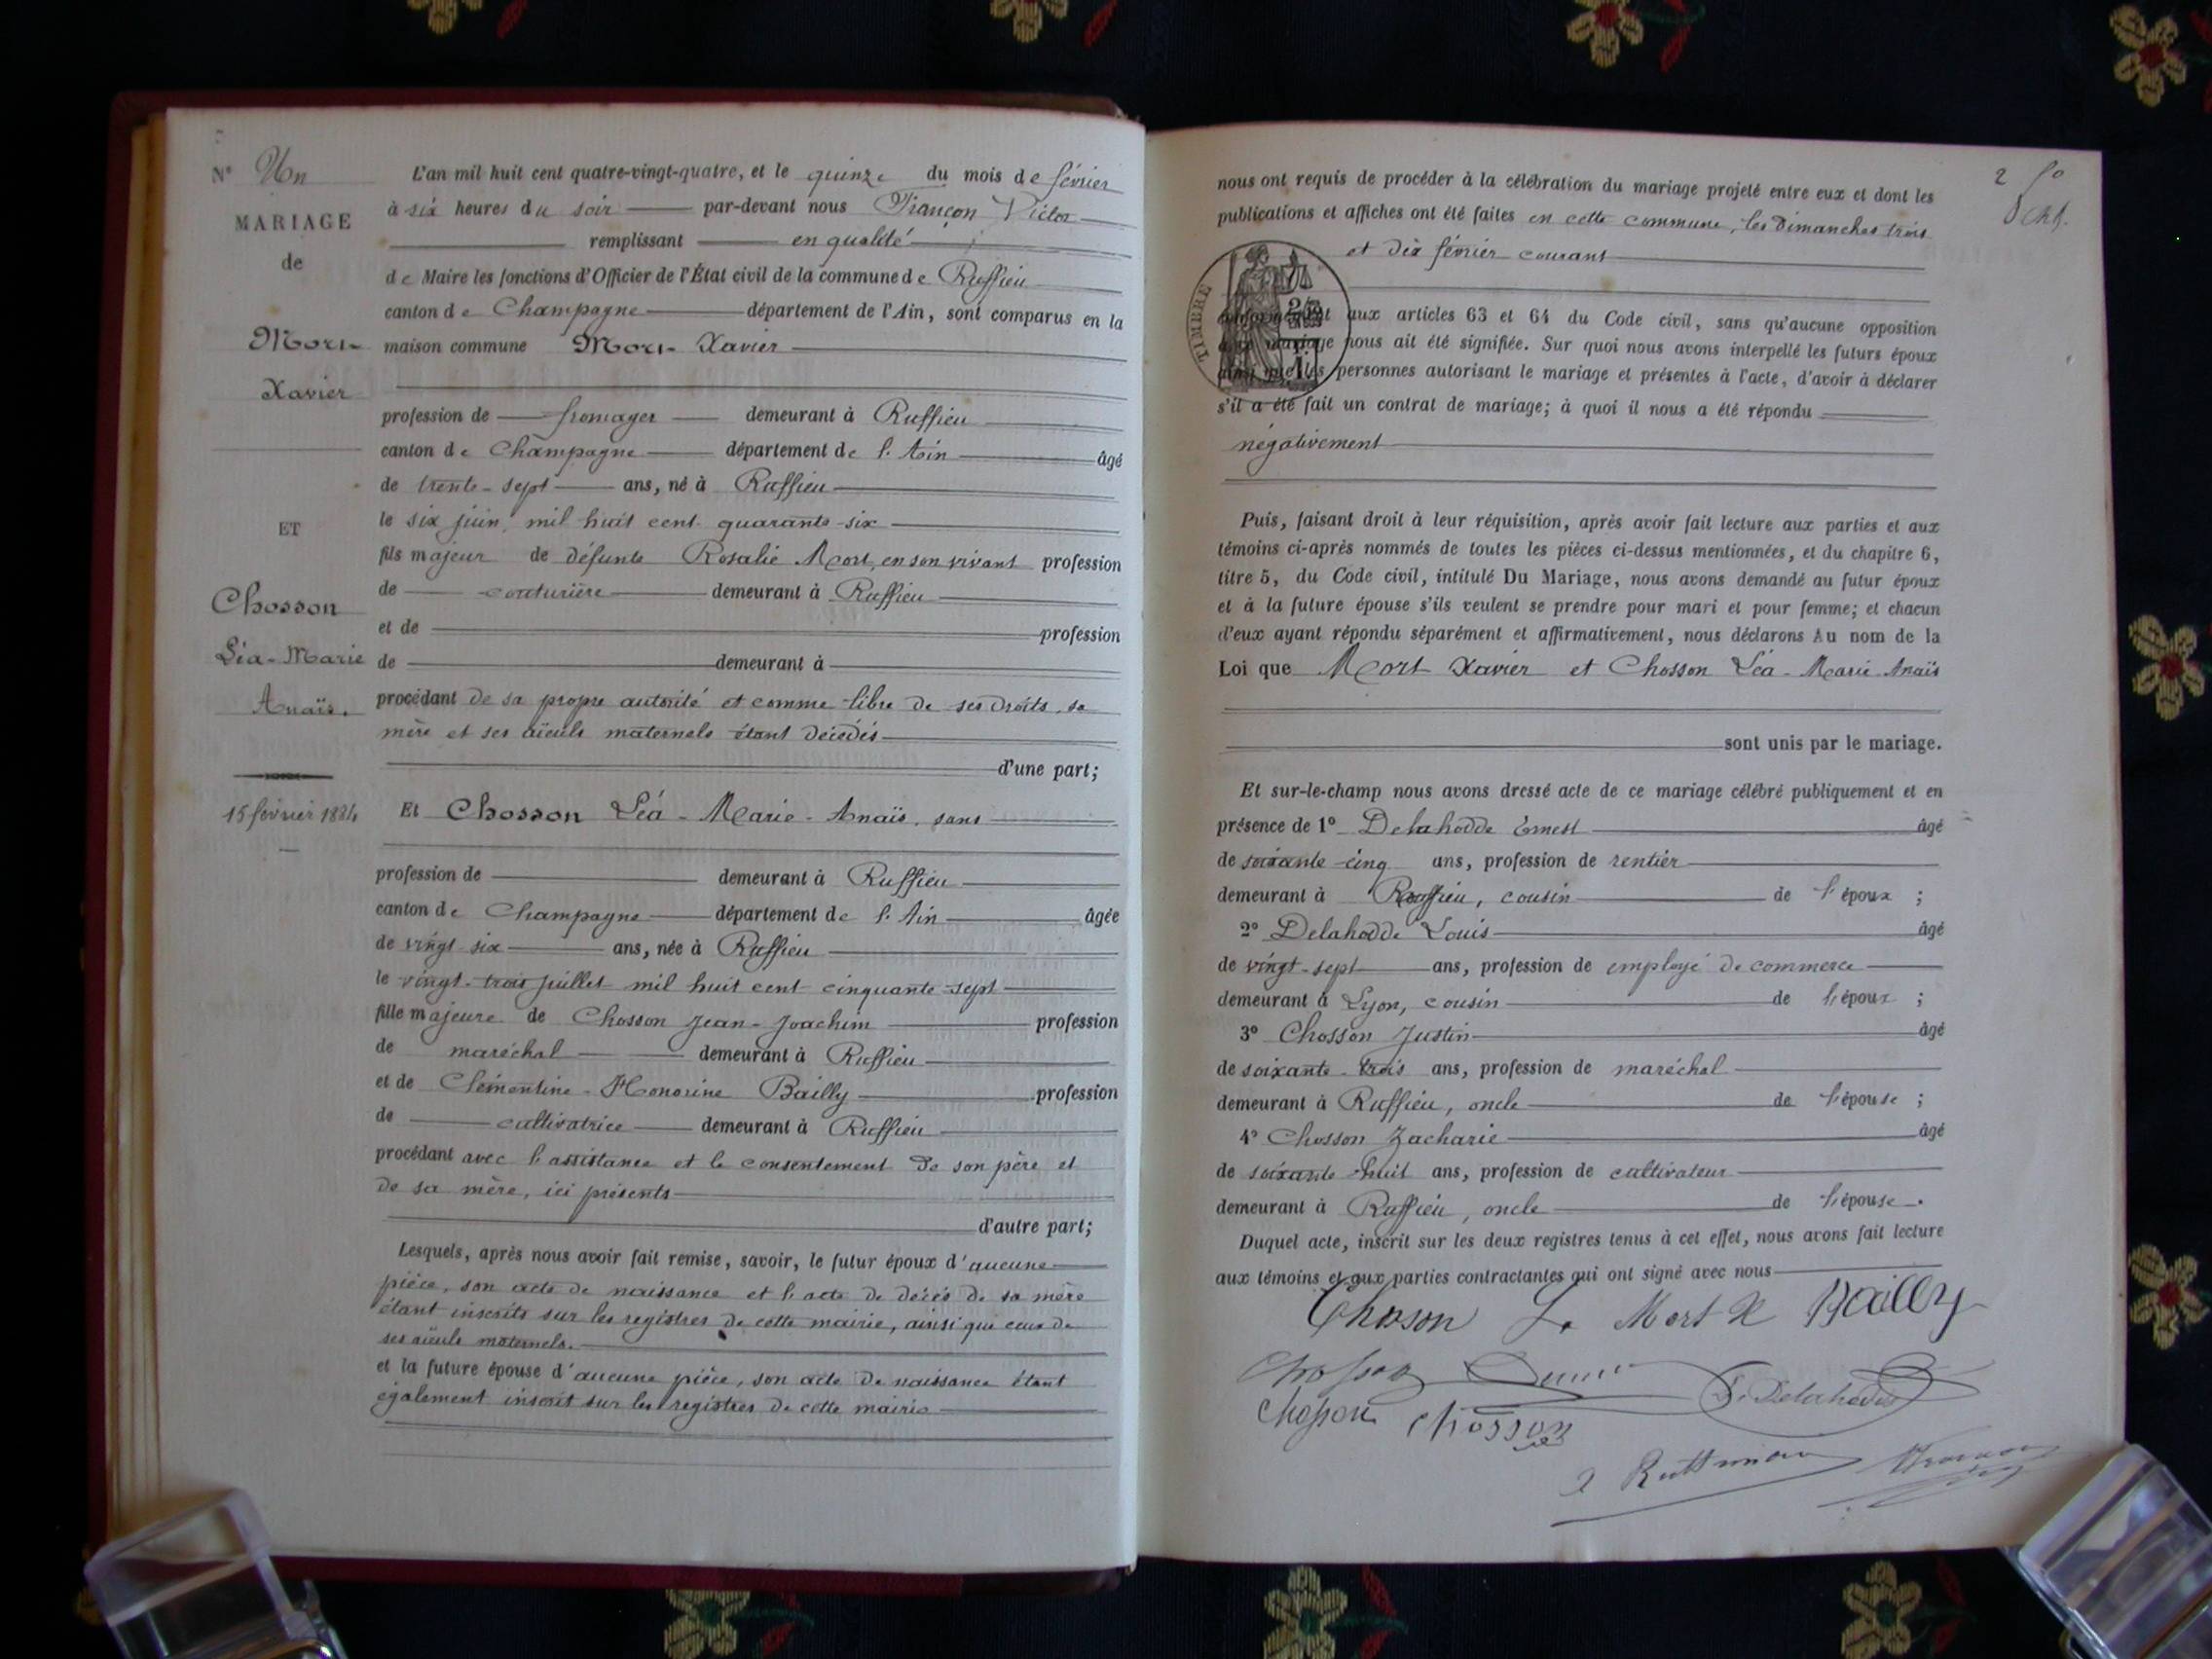 N° Un
MARIAGE
de
Mort
Xavier
ET
Chosson
Léa-Marie
Anaïs.
15 février 1884
L'an mil huit cent quatre-vingt-quatre, et le quinze du mois de février
à six heures du soir par-devant nous Françon Victor
remplissant en qualité
de Maire les fonctions d'Officier de l'État civil de la commune de Ruffieu
canton de Champagne département de l'Ain, sont comparus en la
maison commune Mort Xavier
profession de fromager demeurant à Ruffieu
canton de Champagne département de l'Ain âgé
de trente-sept ans, né à Ruffieu
le six juin mil huit cent quarante-six
fils majeur de défunte Rosalie Mort, en son vivant profession
de couturière demeurant à Ruffieu
et de profession
de demeurant à
procédant de sa propre autorité et comme libre de ses droits, sa
mère et ses aïeuls maternels étant décédés
d'une part;
Et Chosson Léa-Marie-Anaïs, sans
profession de demeurant à Ruffieu
canton de Champagne département de l'Ain âgée
de vingt-six ans, née à Ruffieu
le vingt-trois juillet mil huit cent cinquante-sept
fille majeure de Chosson Jean-Joachim profession
de maréchal demeurant à Ruffieu
et de Clémentine-Honorine Bailly profession
de cultivatrice demeurant à Ruffieu
procédant avec l'assistance et le consentement de son père et
de sa mère, ici présents
d'autre part;
Lesquels, après nous avoir fait remise, savoir, le futur époux d'aucune
pièce, son acte de naissance et l'acte de décès de sa mère
étant inscrits sur les registres de cette mairie, ainsi que ceux de
ses aïeuls maternels.
et la future épouse d'aucune pièce, son acte de naissance étant
également inscrit sur les registres de cette mairie
2
nous ont requis de procéder à la célébration du mariage projeté entre eux et dont les
publications et affiches ont été faites en cette commune, les dimanches trois
et dix février courant
TIMBRE
conformément aux articles 63 et 64 du Code civil, sans qu'aucune opposition
au mariage nous ait été signifiée. Sur quoi nous avons interpellé les futurs époux
ainsi que les personnes autorisant le mariage et présentes à l'acte, d'avoir à déclarer
s'il a été fait un contrat de mariage; à quoi il nous a été répondu
négativement
Puis, faisant droit à leur réquisition, après avoir fait lecture aux parties et aux
témoins ci-après nommés de toutes les pièces ci-dessus mentionnées, et du chapitre 6,
titre 5, du Code civil, intitulé Du Mariage, nous avons demandé au futur époux
et à la future épouse s'ils veulent se prendre pour mari et pour femme; et chacun
d'eux ayant répondu séparément et affirmativement, nous déclarons Au nom de la
Loi que Mort Xavier et Chosson Léa-Marie Anaïs
sont unis par le mariage.
Et sur-le-champ nous avons dressé acte de ce mariage célébré publiquement et en
présence de 1° Delahodde Ernest âgé
de soixante-cinq ans, profession de rentier
demeurant à Ruffieu, cousin de l'époux ;
2° Delahodde Louis âgé
de vingt-sept ans, profession de employé de commerce
demeurant à Lyon, cousin de l'époux ;
3° Chosson Justin âgé
de soixante-trois ans, profession de maréchal
demeurant à Ruffieu, oncle de l'épouse ;
4° Chosson Zacharie âgé
de soixante-huit ans, profession de cultivateur
demeurant à Ruffieu, oncle de l'épouse.
Duquel acte, inscrit sur les deux registres tenus à cet effet, nous avons fait lecture
aux témoins et aux parties contractantes qui ont signé avec nous
Chosson Mort X Bailly
Chosson Delahodde
Chosson Chosson